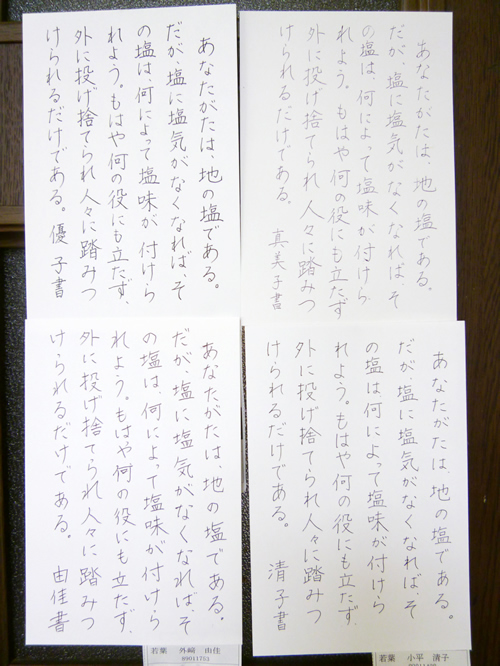 あなたがたは、地の塩である。
だが、塩に塩気がなくなれば、そ
の塩は、何によって塩味が付けら
れよう。もはや何の役にも立たず、
外に投げ捨てられ人々に踏みつ
けられるだけである。優子書
あなたがたは、地の塩である。
だが、塩に塩気がなくなれば、そ
の塩は、何によって塩味が付けら
れよう。もはや何の役にも立たず
外に投げ捨てられ人々に踏みつ
けられるだけである。 真美子書
あなたがたは、地の塩である。
だが、塩に塩気がなくなれば、そ
の塩は、何によって塩味が付けら
れよう。もはや何の役にも立たず、
外に投げ捨てられ人々に踏みつ
けられるだけである。 由佳書
若葉 外﨑 由佳
89011753
あなたがたは、地の塩である。
だが塩に塩気がなくなればそ
の塩は何によって塩味が付けら
れよう。もはや何の役にも立たず、
外に投げ捨てられ人々に踏みつ
けられるだけである。 清子書
若葉 小平 清子